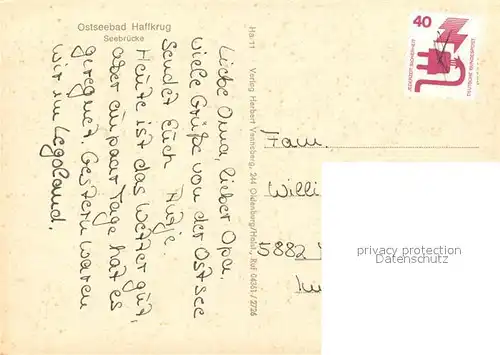 Ostseebad Haffkrug
Seebrücke
Liebe Oma, lieber Opa.
Viele Grüße von der Ostsee
sendet Euch Antje.
Heute ist das Wetter gut,
aber ein paar Tage hat es
geregnet. Gestern waren
wir im Legoland.
Ha 11 Verlag Herbert 244 Oldenburg/Holst., Ruf 04361/2726
40
JEDERZEIT SICHERHEIT
DEUTSCHE BUNDESPOST
Fam.
Willi
5882
privacy protection
Datenschutz